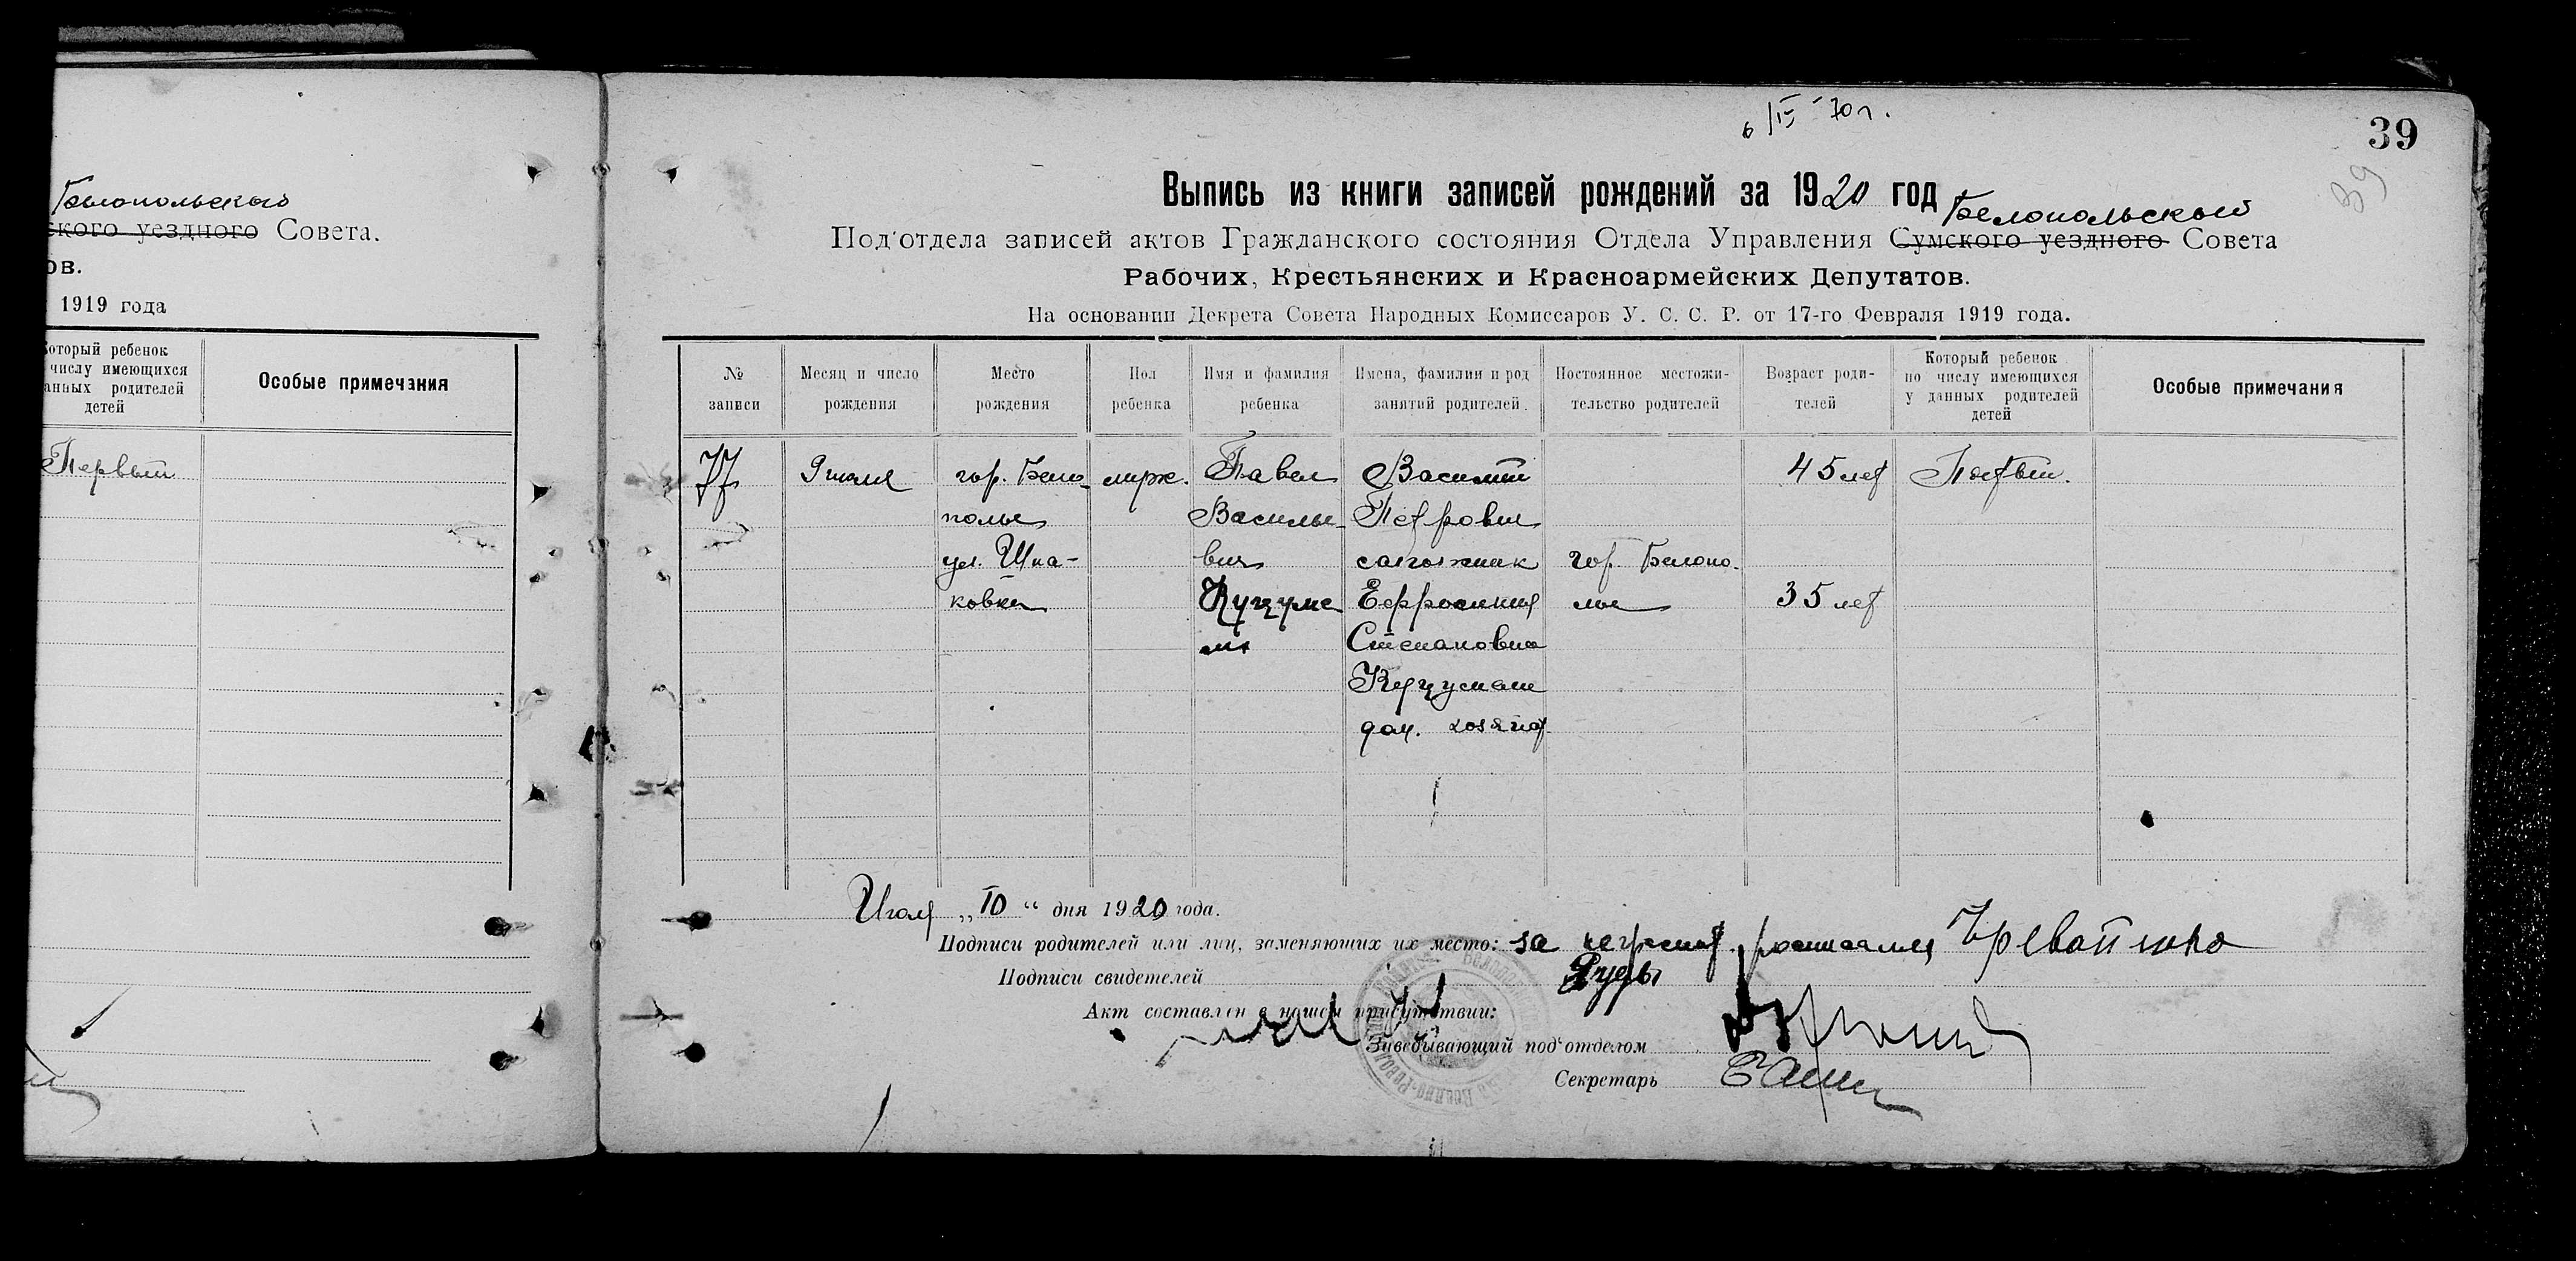 Белопольского
ского уездного Совета.
ов.
1919 года
Который ребенок
числу имеющихся
данных родителей
детей
Особые примечания
Первый
6/IV-70 г.
39
39
Выпись из книги записей рождений за 1920 год
Белопольский
Под'отдела записей актов Гражданского состояния Отдела Управления Сумского уездного Совета
Рабочих, Крестьянских и Красноармейских Депутатов.
На основании Декрета Совета Народных Комиссаров У. С. С. Р. от 17-го Февраля 1919 года.
№ записи
Месяц и число рождения
Место рождения
Пол ребенка
Имя и фамилия ребенка
Имена, фамилии и род занятий родителей.
Постоянное местожи-тельство родителей
Возраст роди-телей
Который ребенок по числу имеющихся у данных родителей детей
Особые примечания
77 9 июля гор. Бело- муж. Павел Василий 45 лет
полье Василье- Петрович
ул. Шпа- вич сапожник гор. Белопо-
ковка Ефросиния лье 35 лет
Степановна
дом.
Июля „10“ дня 1920 года.
Подписи родителей или лиц, заменяющих их место: за
Подписи свидетелей
Акт составлен в нашем присутствии:
Заведывающий под'отделом
Секретарь